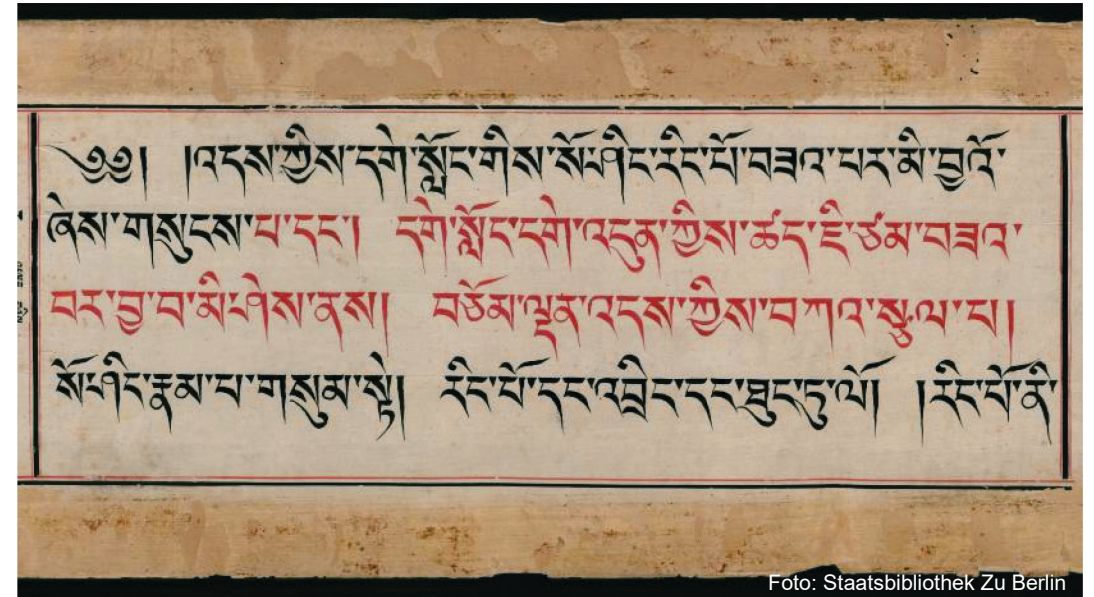 ༄༅། །འདས་ཀྱིས་དགེ་སློང་གིས་སོ་ཤིང་རིང་པོ་བཟའ་བར་མི་བྱའོ་
ཞེས་གསུངས་པ་དང་། དགེ་སློང་དགེ་འདུན་ཀྱིས་ཚད་ཇི་ཙམ་བཟའ་
བར་བྱ་བ་མི་ཤེས་ནས། བཅོམ་ལྡན་འདས་ཀྱིས་བཀའ་སྩལ་པ།
སོ་ཤིང་རྣམ་པ་གསུམ་སྟེ། རིང་པོ་དང་འབྲིང་དང་ཐུང་ངུ་ལོ། །རིང་པོ་ནི་
Foto: Staatsbibliothek Zu Berlin